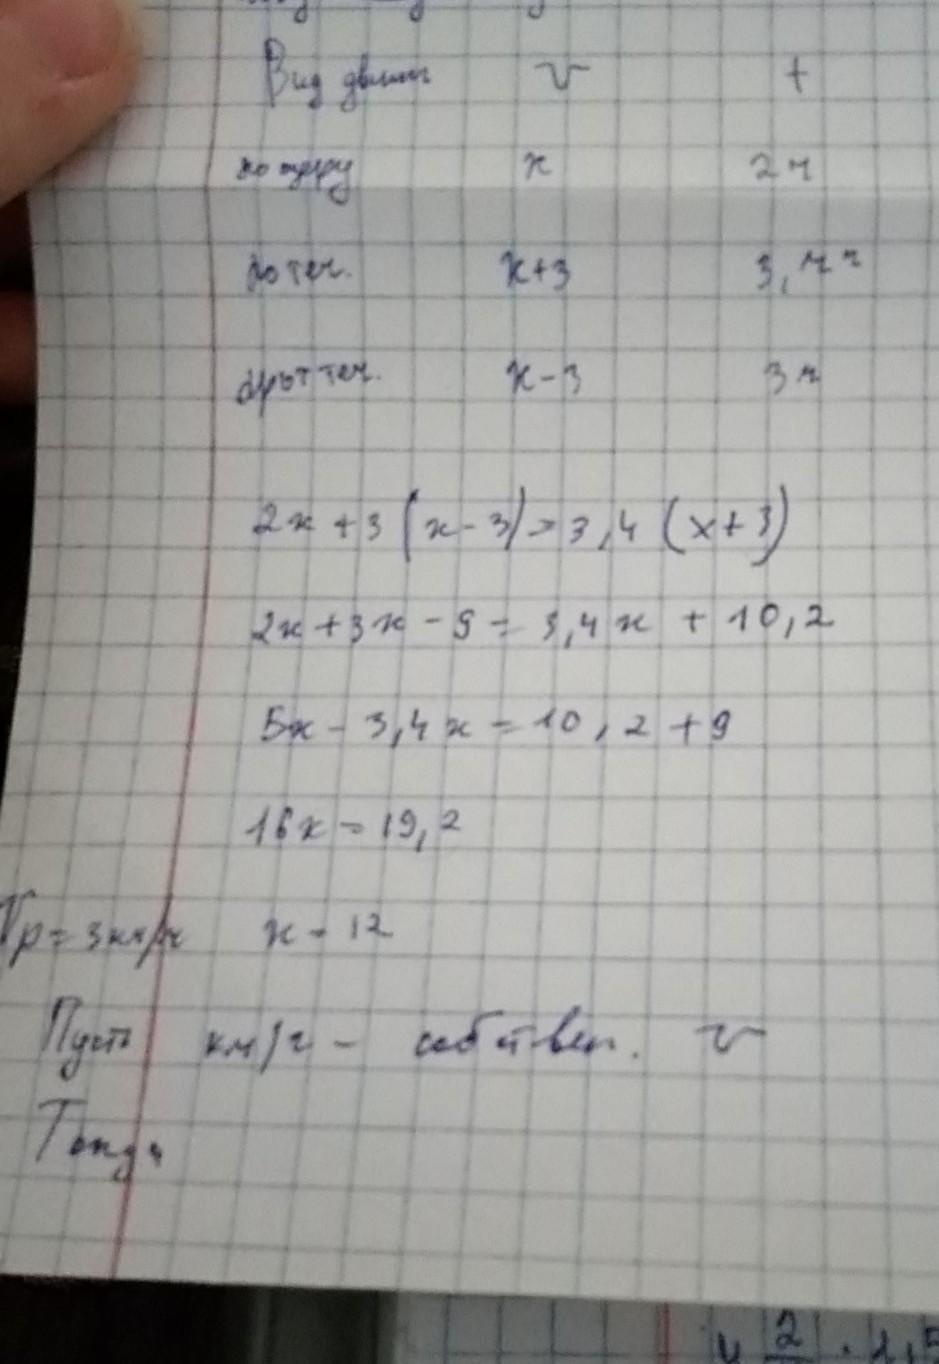 Вид движ v t
по озеру x 2ч
по теч. x+3 3,4ч
прот теч. x-3 3ч
2x+3(x-3)=3,4(x+3)
2x+3x-9=3,4x+10,2
5x-3,4x=10,2+9
16x=19,2
Vр=3км/ч x=12
Пусть км/г - собствен. v
Тогда